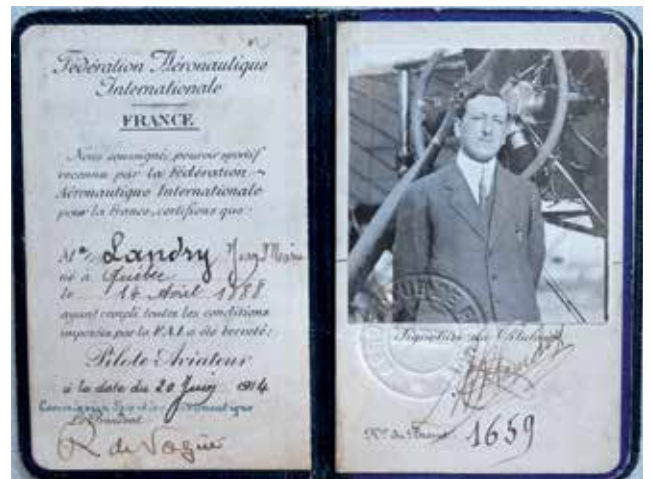 Fédération Aéronautique
Internationale
FRANCE
Nous soussignés, pouvoir sportif
reconnu par la Fédération
Aéronautique Internationale
pour la France, certifions que:
Mr Landry Jean Marie
né à Québec
le 14 Août 1888
ayant rempli toutes les conditions
imposées par la F.A.I. a été breveté:
Pilote-Aviateur
à la date du 20 Juin 1914
Commission Sportive Aéronautique
Le Président
R de Vogüé
Signature du Titulaire
No du Brevet 1659